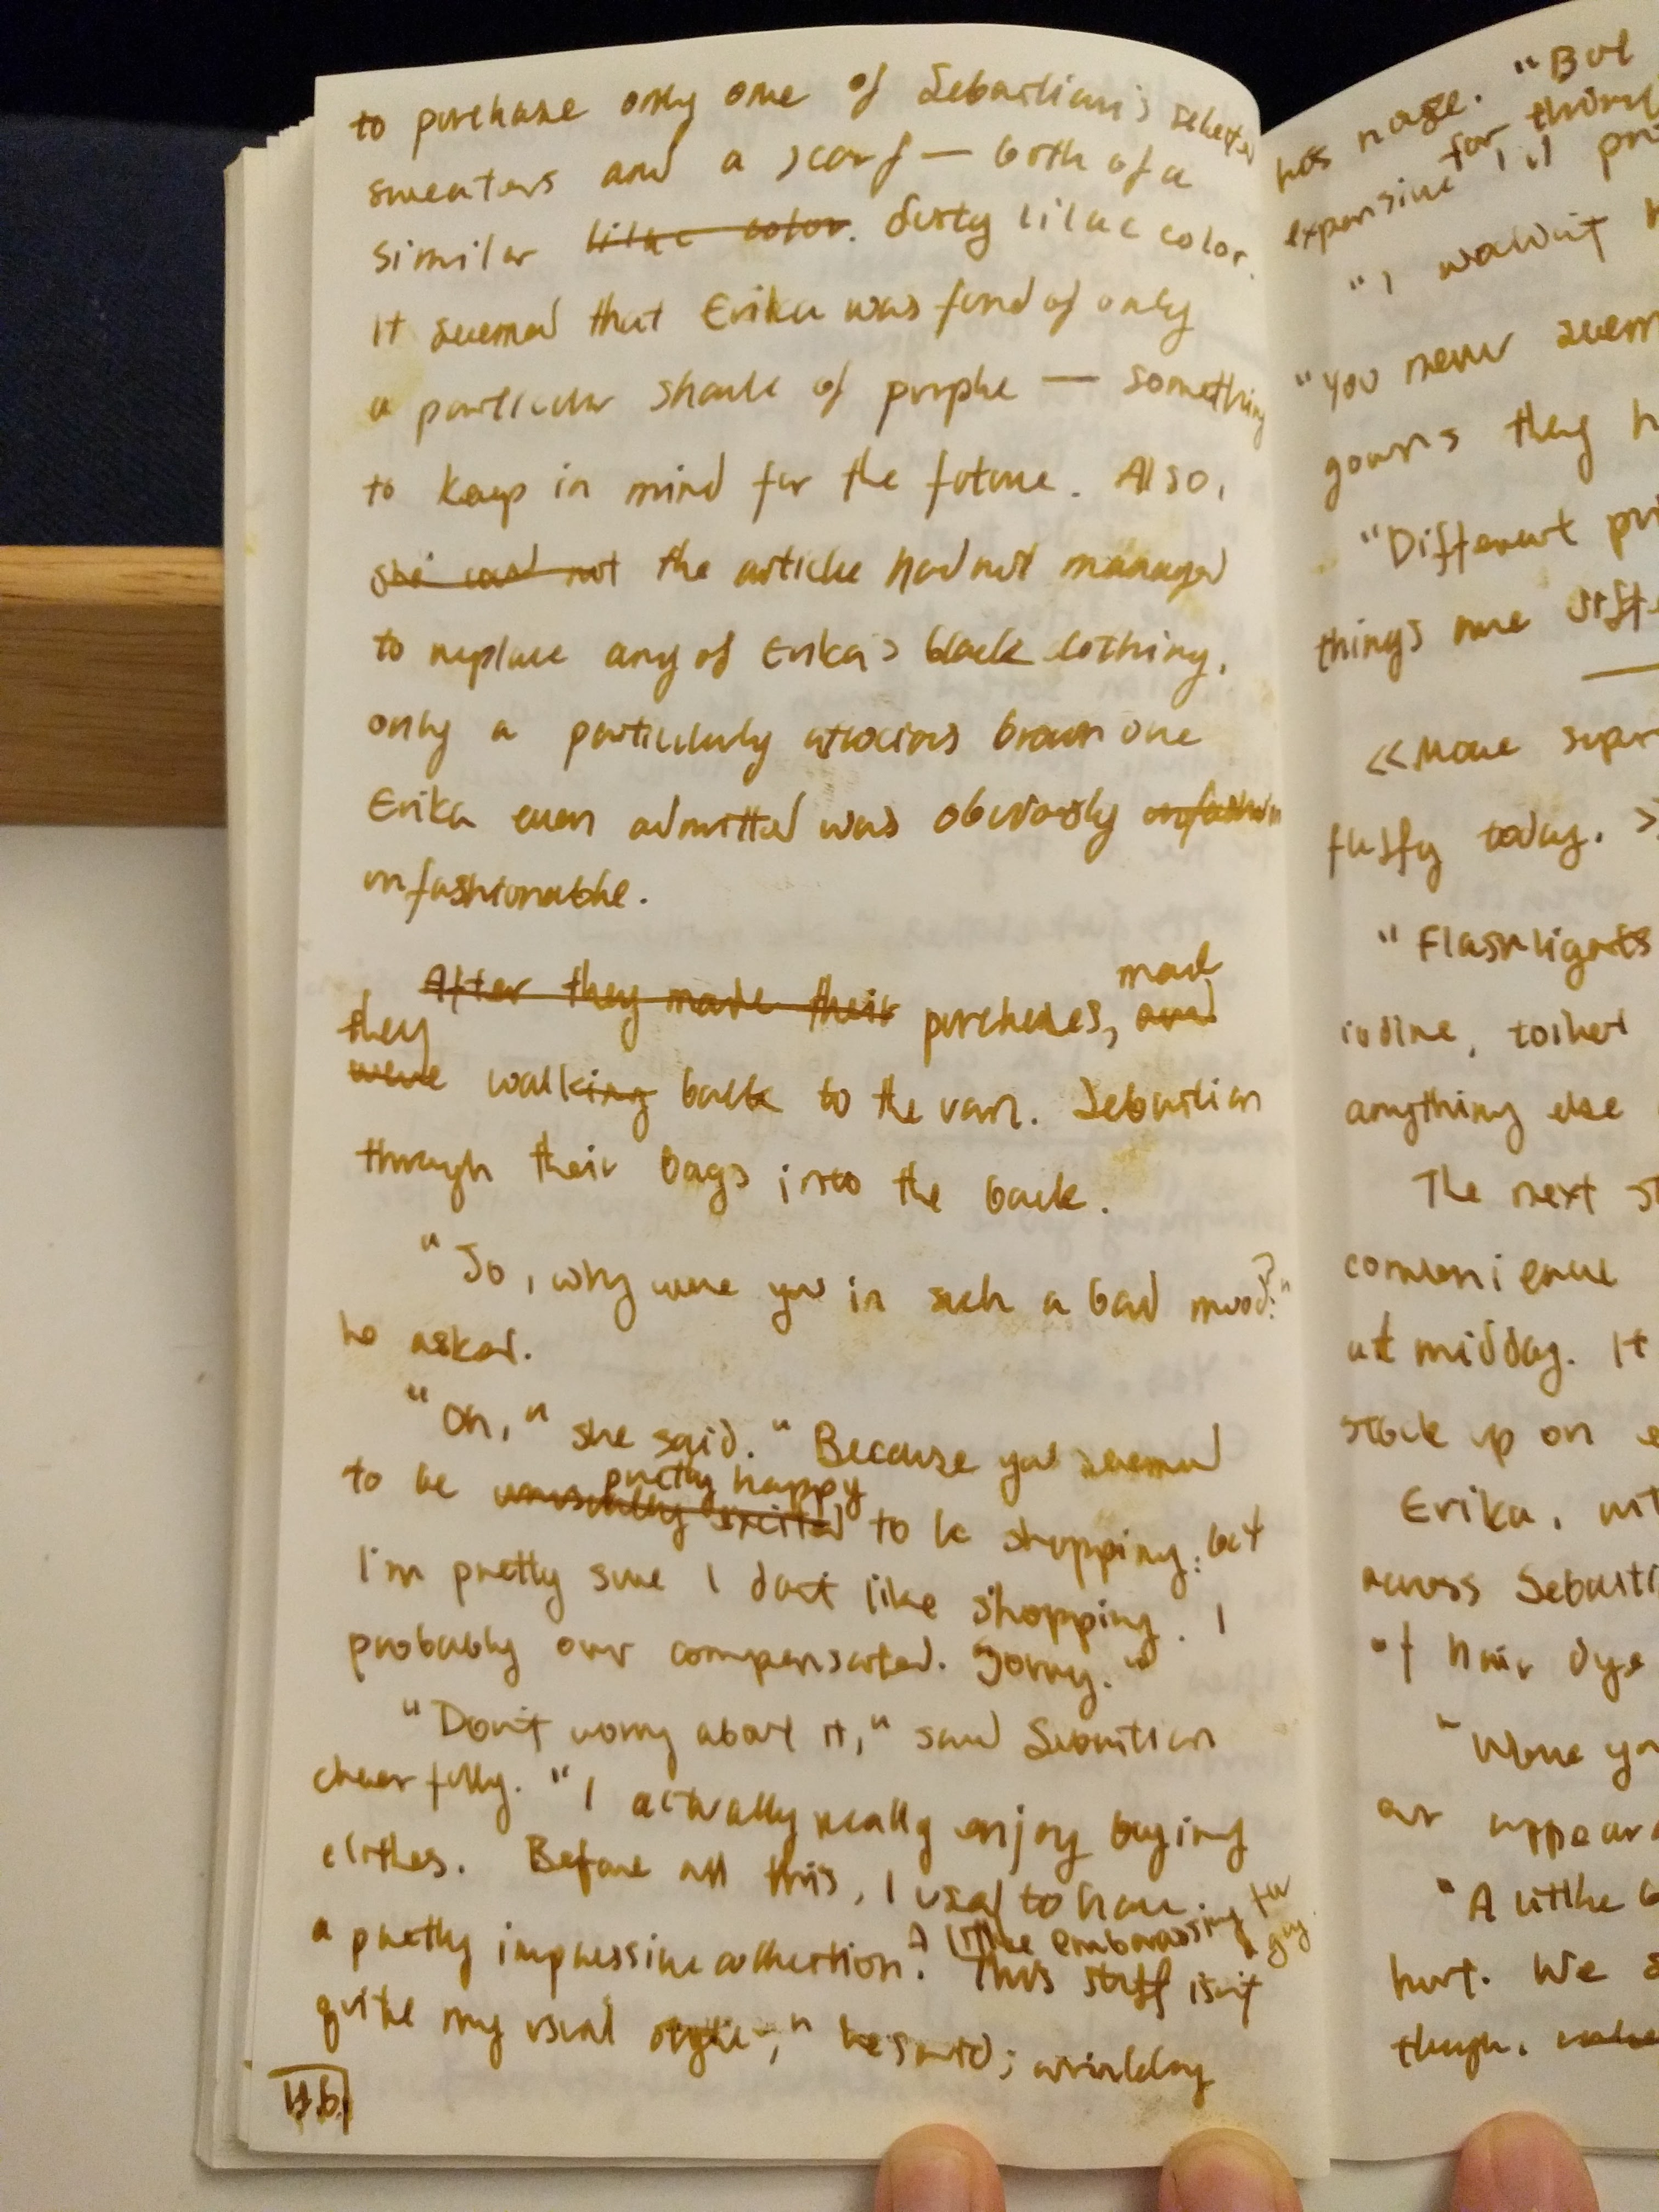 to purchase only one of Sebastian's selected
sweaters and a scarf — both of a
similar lilac color. dusty lilac color.
It seemed that Erika was fond of only
a particular shade of purple — something
to keep in mind for the future. Also,
she had not the article had not managed
to replace any of Erika's black clothing,
only a particularly atrocious brown one
Erika even admitted was obviously unfashion
unfashionable.
made
After they made their purchases, and
they
were walking back to the van. Sebastian
through their bags into the back.
"So, why were you in such a bad mood?"
he asked.
"Oh," she said. "Because you seemed
pretty happy
to be unusually excited to be shopping, but
I'm pretty sure I don't like shopping. I
probably over compensated. Sorry."
"Don't worry about it," said Sebastian
cheerfully. "I actually really enjoy buying
clothes. Before all this, I used to have
A little embarrassing for a guy.
a pretty impressive collection. This stuff isn't
quite my usual style," he said, wrinkling
his nose. "But
for things
expensive
"I wouldn't
"You never seem
gowns they
"Different
things are
«More
fluffy today.
"Flashlights
iodine,
anything else
The next
convenience
at midday. It
stock up on
Erika,
across
of hair dye
"Were
our
"A little
hurt. We
though.